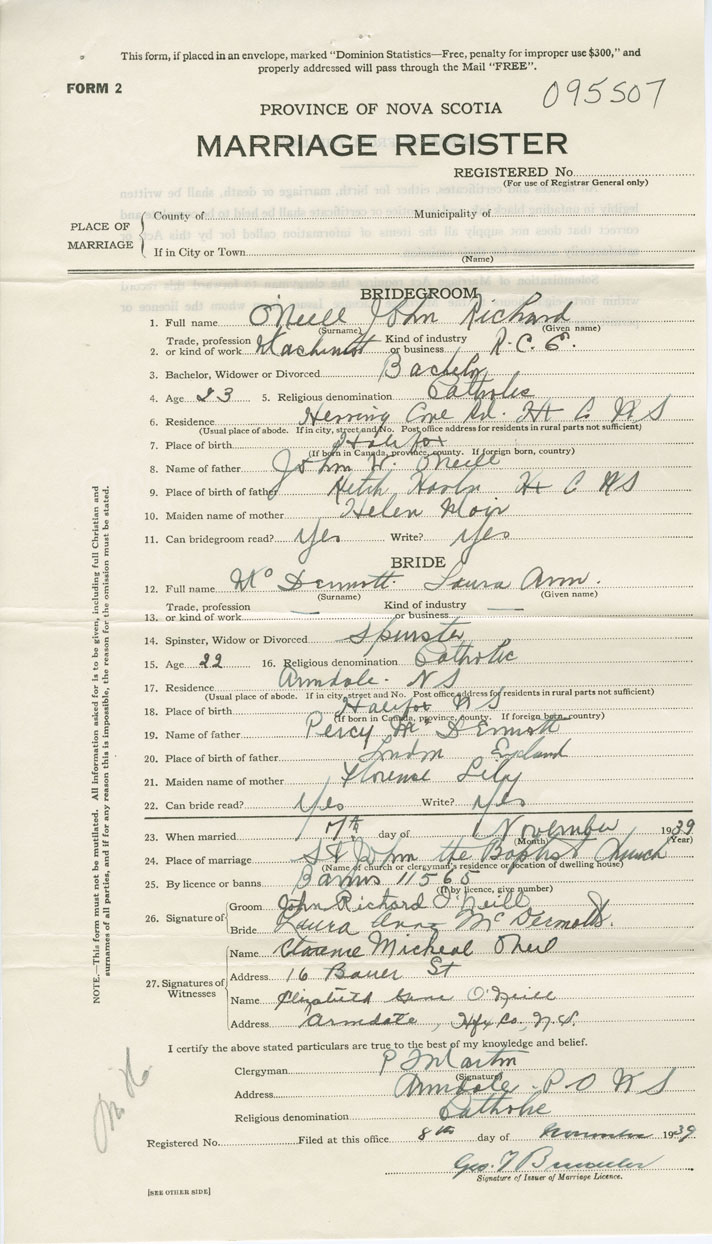 This form, if placed in an envelope, marked "Dominion Statistics—Free, penalty for improper use $300," and
properly addressed will pass through the Mail "FREE".
FORM 2
095507
PROVINCE OF NOVA SCOTIA
MARRIAGE REGISTER
REGISTERED No.
(For use of Registrar General only)
PLACE OF MARRIAGE
County of Municipality of
If in City or Town
(Name)
BRIDEGROOM
1. Full name O'Neill John Richard
(Surname) (Given name)
2. Trade, profession or kind of work Machinist Kind of industry or business R.C.E.
3. Bachelor, Widower or Divorced Bachelor
4. Age 23 5. Religious denomination Catholic
6. Residence Herring Cove Rd. Hx C NS
(Usual place of abode. If in city, street and No. Post office address for residents in rural parts not sufficient)
7. Place of birth Halifax
(If born in Canada, province, county. If foreign born, country)
8. Name of father John W. O'Neill
9. Place of birth of father Ketch Harbr Hx C NS
10. Maiden name of mother Helen Moir
11. Can bridegroom read? Yes Write? Yes
BRIDE
12. Full name McDermott. Laura Ann.
(Surname) (Given name)
13. Trade, profession or kind of work — Kind of industry or business —
14. Spinster, Widow or Divorced Spinster
15. Age 22 16. Religious denomination Catholic
17. Residence Armdale. NS
(Usual place of abode. If in city, street and No. Post office address for residents in rural parts not sufficient)
18. Place of birth Halifax NS
(If born in Canada, province, county. If foreign born, country)
19. Name of father Percy McDermott
20. Place of birth of father London England
21. Maiden name of mother Florence Lily
22. Can bride read? Yes Write? Yes
23. When married 7th day of November 1939
(Month) (Year)
24. Place of marriage St John the Baptist Church
(Name of church or clergyman's residence or location of dwelling house)
25. By licence or banns Banns 11565
(If by licence, give number)
26. Signature of
Groom John Richard O'Neill
Bride Laura Anna McDermott.
27. Signatures of Witnesses
Name Clarence Micheal Oneil
Address 16 Bauer St
Name Elizabeth O'Neill
Address Armdale, Hfx Co, N.S.
I certify the above stated particulars are true to the best of my knowledge and belief.
Clergyman P Martin
(Signature)
Address Armdale P O NS
Religious denomination Catholic
Registered No. Filed at this office 8th day of November 1939
Geo. T
Signature of Issuer of Marriage Licence.
[SEE OTHER SIDE]
NOTE.—This form must not be mutilated. All Information asked for is to be given, including full Christian and
surnames of all parties, and if for any reason this is impossible, the reason for the omission must be stated.